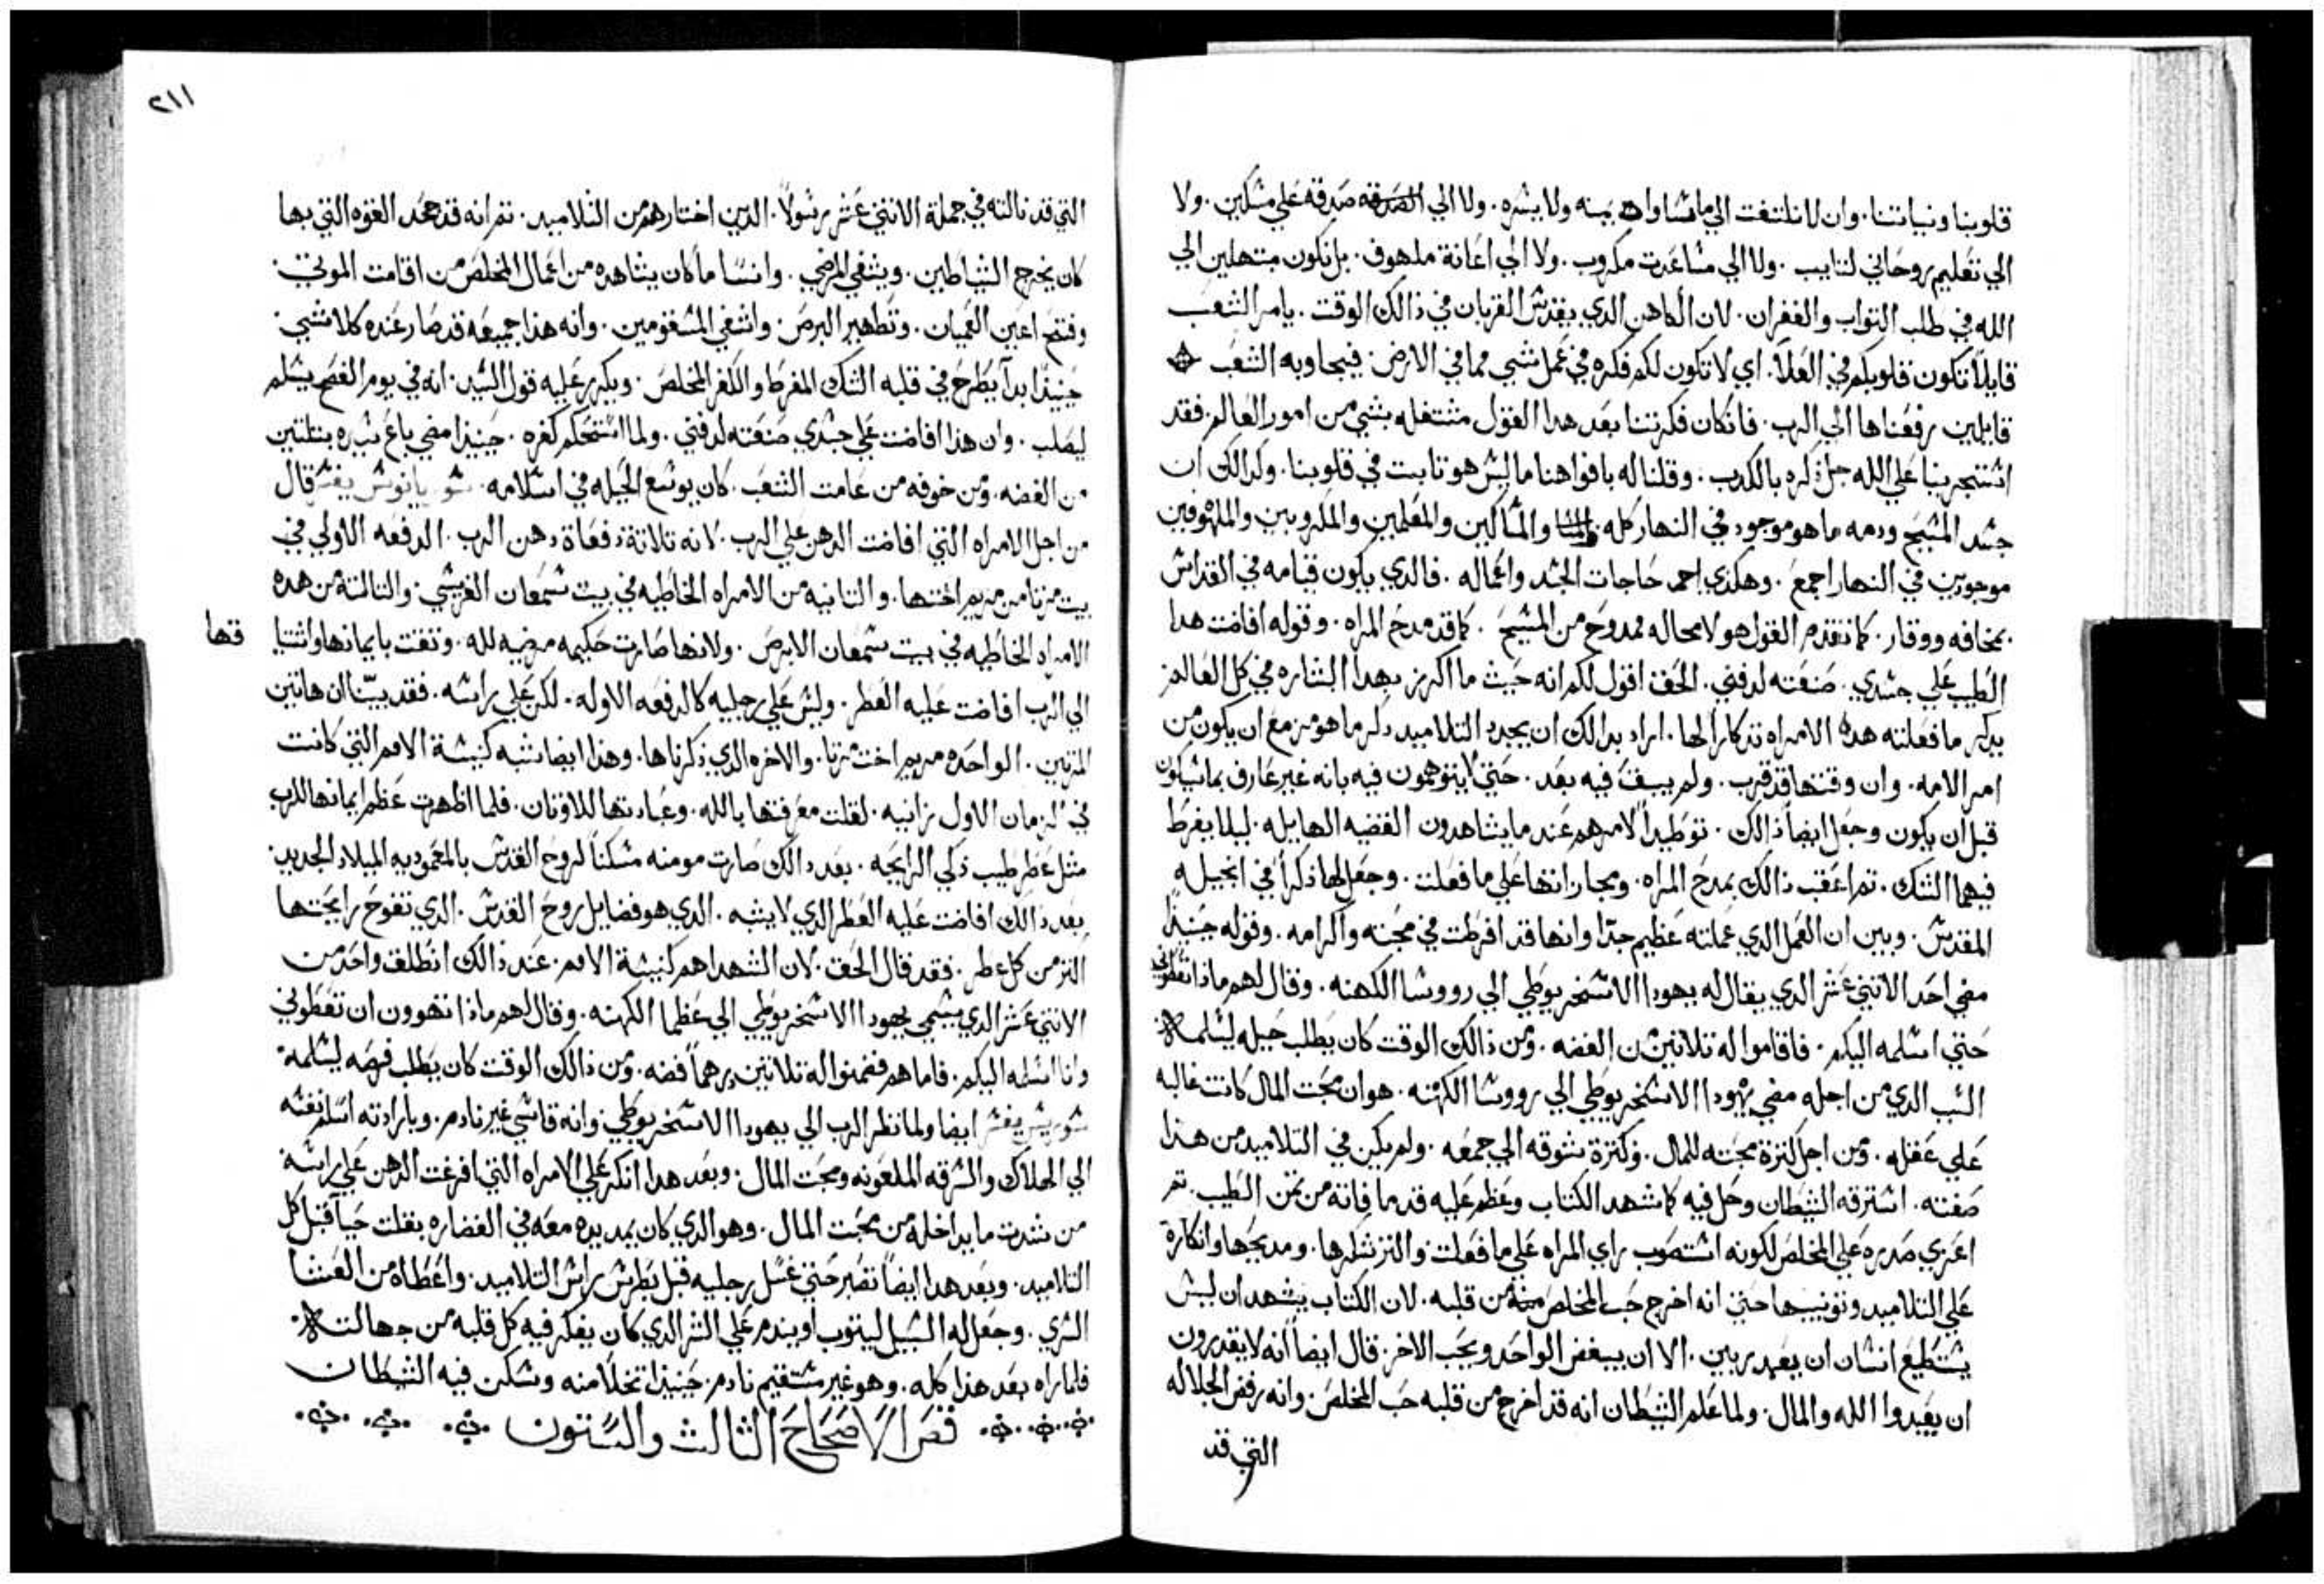 قلوبنا ونياتنا. وان لا نلتفت الي ما يمنه ولا يسره. ولا الي صدقه علي مسكين. ولا
الي تعليم روحاني لتايب. ولا الي مساعدت مكروب. ولا الي اعانة ملهوف. بل نكون مبتهلين الي
الله في طلب التواب والغفران. لان الكاهن الدي يقدس القربان في دالك الوقت. يامر الشعب
قايلاً تكون قلوبكم في العلا. اي لا تكون لكم فكره في عمل شي مما في الارض. فيجاوبه الشعب
قايلين رفعناها الي الرب. فان كان فكرتنا بعد هدا القول مشتغله بشي من امور العالم. فقد
استجرينا علي الله جل دكره بالكدب. وقلنا له بافواهنا ما ليس هو تابت في قلوبنا. وكدالك ان
جسد المسيح ودمه ما هو موجود في النهار كله والمساكين والمعلمين والمكروبين والملهوفين
موجودين في النهار اجمع. وهكدي احمد حاجات الجسد واعماله. فالدي يكون قيامه في القداس
بمخافه ووقار. كما تقدم القول هو لا محاله ممدوح من المسيح. كما قد مدح المراه. وقوله افاضت هدا
الطيب علي جسدي. صنعته لدفني. الحق اقول لكم انه حيث ما اكرز بهدا البشاره في كل العالم
يدكر ما فعلته هده الامراه تدكاراً لها. اراد بدالك ان يجدد التلاميد دكر ما هو مزمع ان يكون من
امر الامه. وان وقتها قد قرب. ولم يبق فيه بعد. حتي لا يتوهمون فيه بانه غير عارف بما سيكون
قبل ان يكون وجعل ايضاً دالك. توطيداً لامرهم عند ما يشاهدون القضيه الهايله. ليلا يفرط
فيهما الشك. تم اعقب دالك بمدح المراه. ومجازاتها علي ما فعلت. وجعل لها دكراً في انجيله
المقدس. وبين ان العمل الدي عملته عظيم جداً وانها قد افرطت في محبته واكرامه. وقوله حينيداً
مضي احد الاتني عشر الدي يقال له يهودا الاسخريوطي الي رووسا الكهنه. وقال لهم مادا تعطوني
حتي اسلمه اليكم. فاقاموا له تلاتين من الفضه. ومن دالك الوقت كان يطلب حيله ليسلمه
السبب الدي من اجله مضي يهودا الاسخريوطي الي رووسا الكهنه. هو ان محبت المال كانت غالبه
علي عقله. ومن اجل كترة محبته للمال. وكترة شوقه الي جمعه. ولم يكن في التلاميد من هدا
صفته. استرقه الشيطان وحل فيه كما شهد الكتاب وعظم عليه قد ما فاته من تمن الطيب. تم
اغري صدره علي المخلص لكونه استصوب راي المراه علي ما فعلت والتز شكرها. ومديحها وانكاره
علي التلاميد وتونيبها حتي انه اخرج حب المخلص من قلبه. لان الكتاب يشهد ان ليس
يستطيع انسان ان يعبد ربين. الا ان يبغض الواحد ويحب الاخر. قال ايضاً انه لا يقدرون
ان يعبدوا الله والمال. ولما علم الشيطان انه قد اخرج من قلبه حب المخلص. وانه رفض الجلاله
التي قد
٢١١
التي قد نالته في جملة الاتني عشر رسولاً. الدين اختارهم من التلاميد. تم انه قد جحد القوه التي بها
كان يخرج الشياطين. ويشفي المرضي. وانسا ما كان يشاهده من اعمال المخلص من اقامت الموتي
وفتح اعين العميان. وتطهير البرص. واشفي المسقومين. وانه هدا جميعه قد صار عنده كلا شي
حينيداً بدا يطرح في قلبه الشك المفرط والكفر المخلص. ويكرر عليه قول السيد. انه في يوم الفصح يسلم
ليصلب. وان هدا افاضت علي جسدي صنعته لدفني. ولما استحكم كفره. حينيدا مضي باع سيده بتلتين
من الفضه. ومن خوفه من عامت الشعب. كان يوسع الحيله في اسلامه. يفسر قال
من اجل الامراه التي افاضت الدهن علي الرب. لانه تلاتة دفعاة دهن الرب. الدفعه الاولي في
بيت مرتا من مريم اختها. والتانيه من الامراه الخاطيه في بيت سمعان الفريسي. والتالته من هده
الامراه الخاطيه في بيت سمعان الابرص. ولانها صارت حكيمه مرضيه لله. وتقت بايمانها واشتيا
قها
الي الرب افاضت عليه العطر. وليس علي رجليه كالدفعه الاوله. لكن علي راسه. فقد بينا ان هاتين
المرتين. الواحده مريم اخت مرتا. والاخره الدي دكرناها. وهدا ايضا تشبه كنيسة الامم التي كانت
في الزمان الاول زانيه. لقلت معرفتها بالله. وعبادتها للاوتان. فلما اظهرت عظم ايمانها للرب
متل عطر طيب دكي الرايحه. بعد دالك صارت مومنه مسكناً لروح القدس بالمعموديه الميلاد الجديد.
بعد دالك افاضت عليه العطر الدي لا يشبه. الدي هو فضايل روح القدس. الدي تفوح رايحتها
التز من كل عطر. فقد قال الحق. لان الشهدا هم كنيسة الامم. عند دالك انطلق واحد من
الاتني عشر الدي يسمي يهودا الاسخريوطي الي عظما الكهنه. وقال لهم مادا تهوون ان تعطوني
وانا اسلمه اليكم. فاما هم فضمنوا له تلاتين درهماً فضه. ومن دالك الوقت كان يطلب فرصه ليسلمه
يفسر ايضا ولما نظر الرب الي يهودا الاسخريوطي وانه قاسي غير نادم. وبارادته اسلم نفسه
الي الهلاك والسرقه الملعونه ومحبت المال. وبعد هدا انكر علي الامراه التي افرغت الدهن علي راسه
من شدت ما يداخله من محبت المال. وهو الدي كان يمد يده معه في الغضاره بقلت حيا قبل كل
التلاميد. وبعد هدا ايضاً تصبر حتي غسل رجليه قبل بطرس راس التلاميد. واعطاه من العشا
السري. وجعل له السبيل ليتوب او يندم علي الشر الدي كان يفكر فيه كل قلبه من جهالته.
فلما راه بعد هدا كله. وهو غير مستقيم نادم. حينيدا تخلا منه وسكن فيه الشيطان
فصر الاصحاح التالت والستون